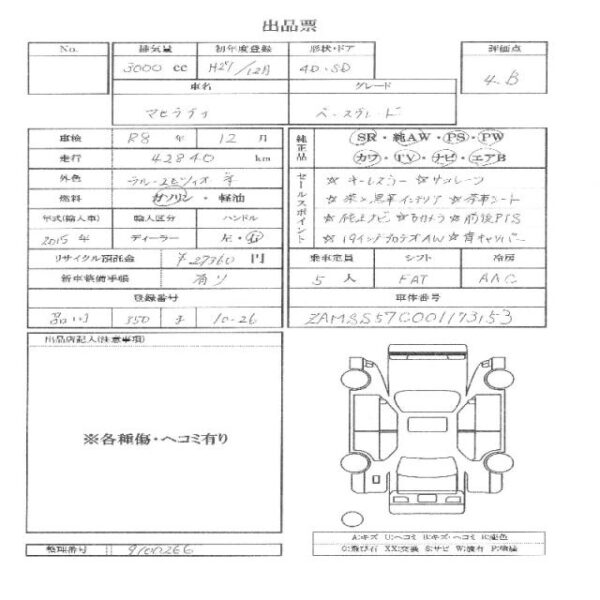 出品票
No. 排気量 初年度登録 形状・ドア 評価点
3000 cc H27/12月 4D・SD 4.B
車名 グレード
マセラティ ベースグレード
車検 R8 年 12 月
純正品 SR・純AW・PS・PW
走行 42840 km
カワ・TV・ナビ・エアB
外色
セールスポイント ☆ キーレスゴー ☆ サンルーフ
燃料 ガソリン・軽油
☆ 茶×黒革インテリア ☆
年式(輸入車) 輸入区分 ハンドル
☆ ナビ ☆ Bカメラ ☆ 前後PTS
2015 年 ディーラー 左・右
☆ 19インチ AW ☆ 青キャリパー
リサイクル預託金 ¥27360 円
乗車定員 シフト 冷房
新車整備手帳 有り
5 人 FAT AAC
登録番号 車体番号
品川 350 す 10-26 ZAMSS57C001173153
出品店記入(注意事項)
※各種傷・ヘコミ有り
A:キズ U:ヘコミ B:キズ・ヘコミ R:変色
G:飛び石 XX:交換 S:サビ W:波有 P:塗膜
整理番号 9101266